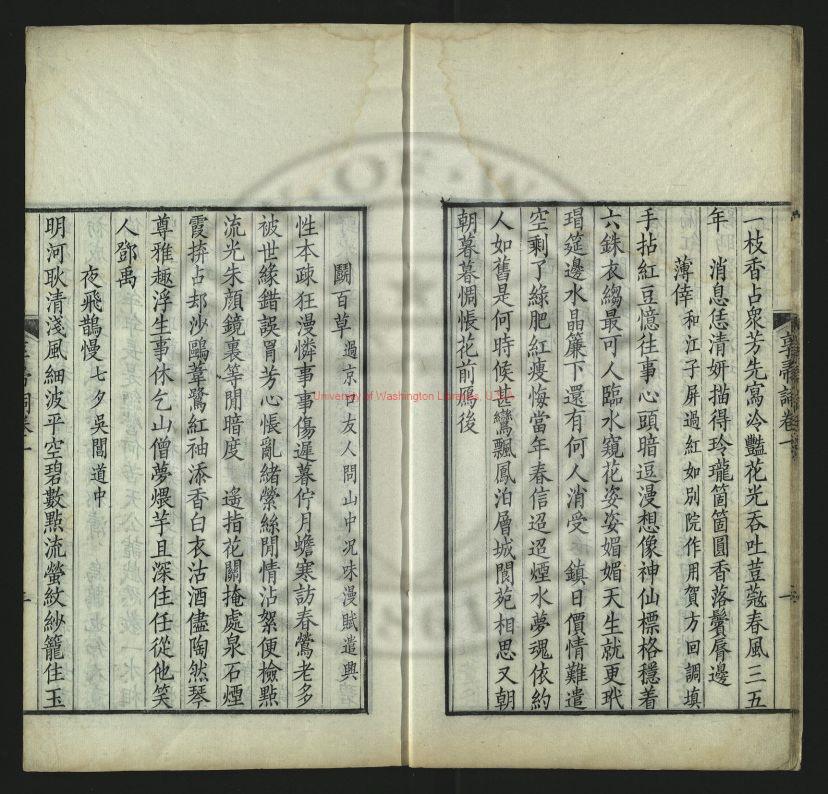 一枝香占衆芳先寫冷豔花光吞吐荳蔻春風三五
年　消息恁清妍描得玲瓏箇箇圓香落鬢脣邊
薄倖 和江子屏過紅如別院作用賀方回調填
手拈紅豆憶往事心頭暗逗漫想像神仙標格穩着
六銖衣縐最可人臨水窺花姿姿媚媚天生就更玳
瑁筵邊水晶簾下還有何人消受　鎮日價情難遣
空剩了綠肥紅瘦悔當年春信迢迢煙水夢魂依約
人如舊是何時候甚鸞飄鳳泊層城閬苑相思又朝
朝暮暮惆悵花前鴈後
鬬百草 過京口友人問山中况味漫賦遣興
性本疎狂漫憐事事傷遲暮佇月蟾寒訪春鶯老多
被世緣錯誤罥芳心悵亂緒縈絲閒情沾絮便檢點
流光朱顏鏡裏等閒暗度　遙指花關掩處泉石煙
霞拚占却沙鷗葦鷺紅袖添香白衣沽酒儘陶然琴
尊雅趣浮生事休乞山僧夢煨芋且深住任從他笑
人鄧禹
夜飛鵲慢 七夕吳閶道中
明河耿清淺風細波平空碧數點流螢紋紗籠住玉
University of Washington Libraries, U.S.A.